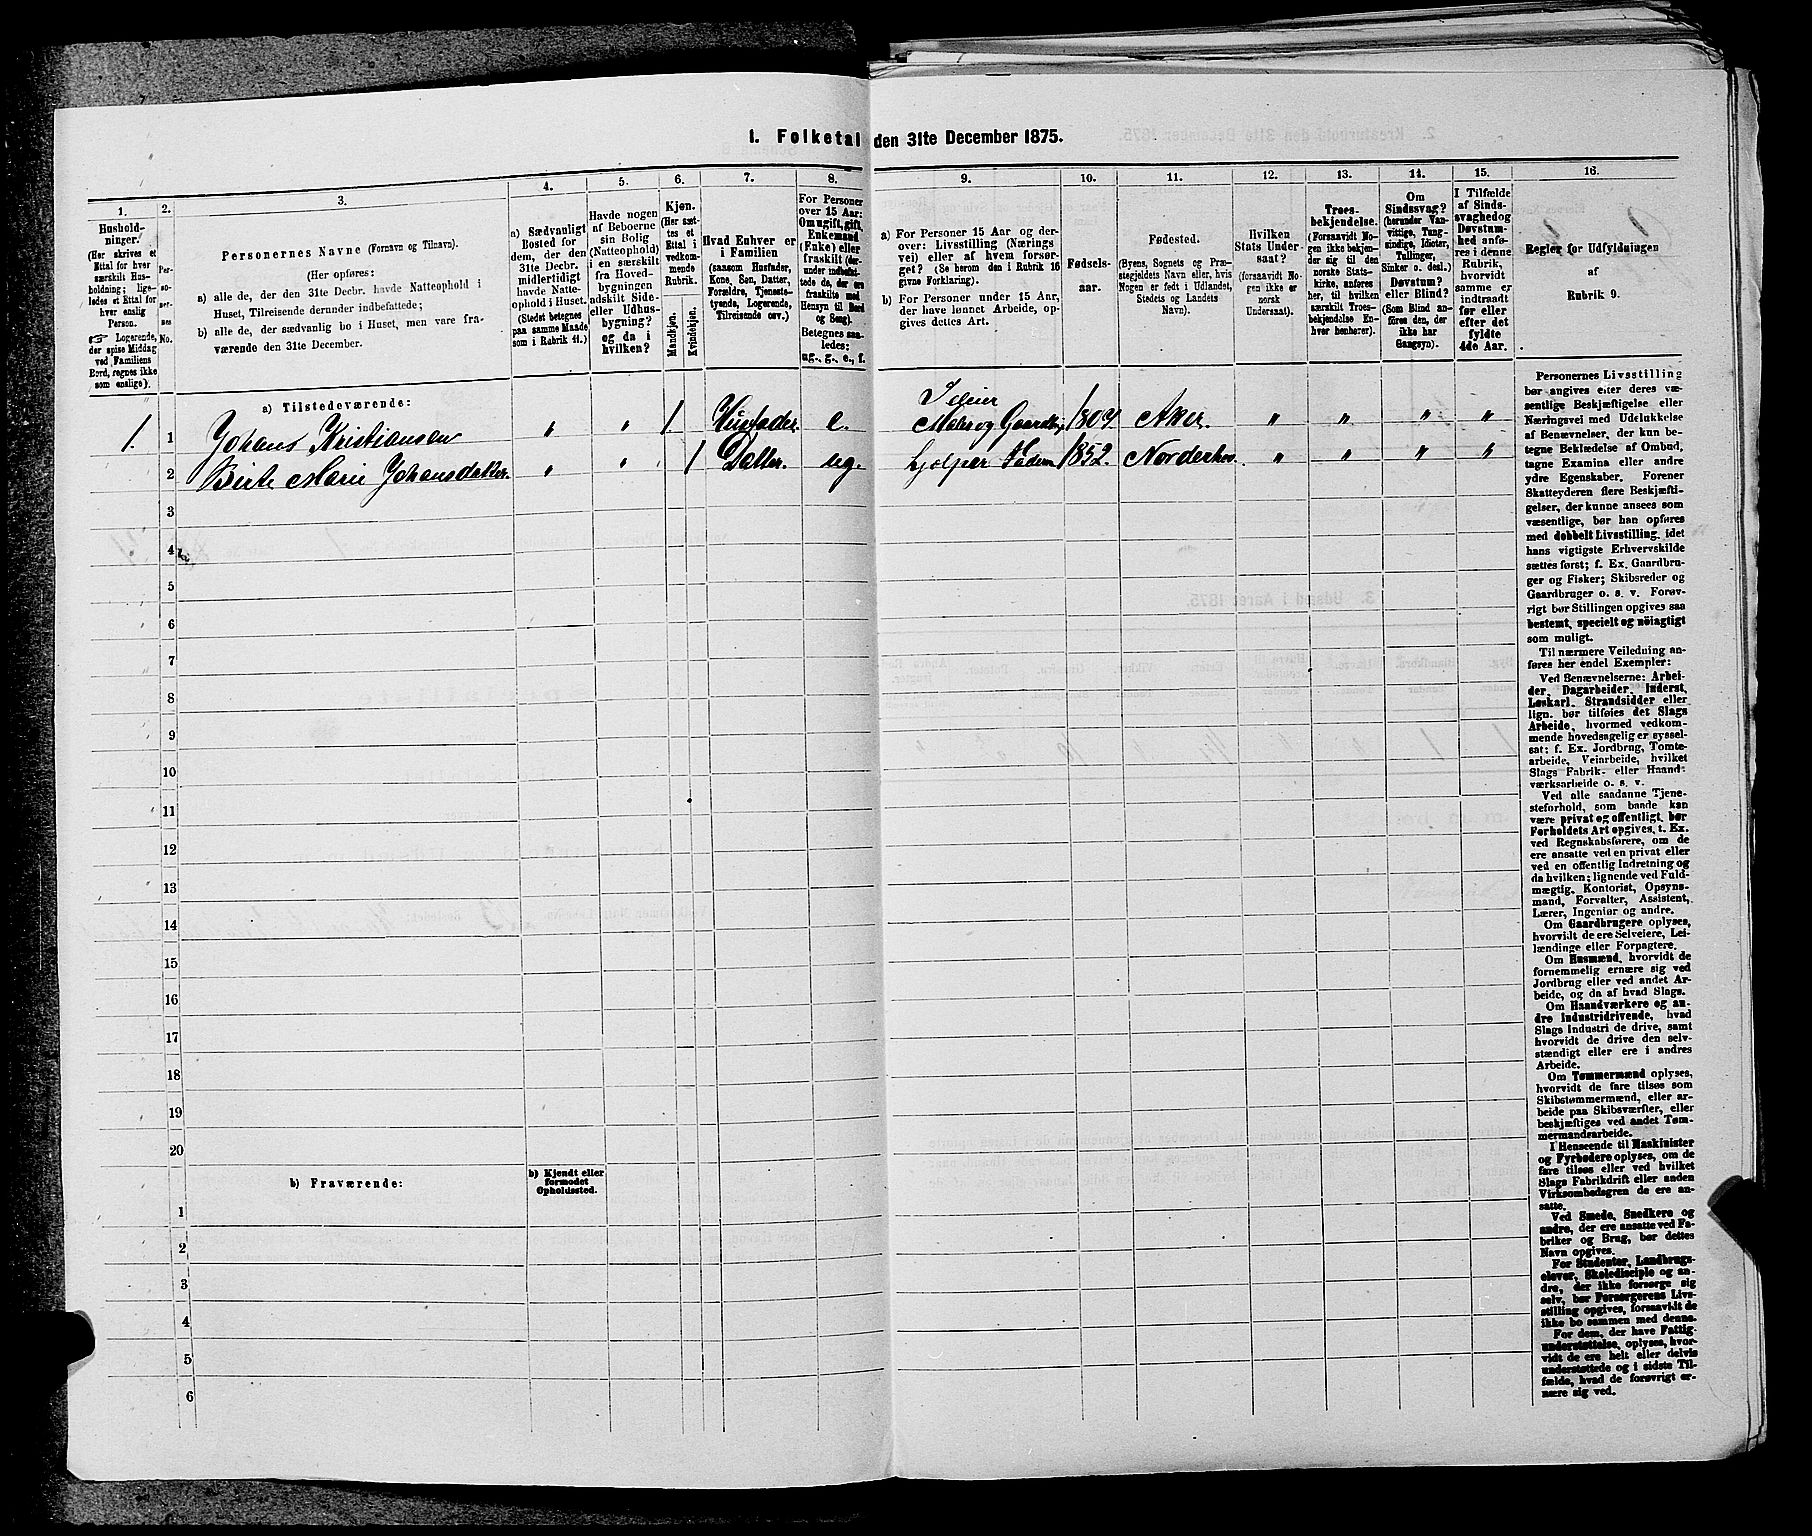 1. Folketal den 31te December 1875.
1.
Hushold-
ninger.
(Her skrives et
Ettal for hver
særskilt Hus-
holdning; lige-
ledes et Ettal for
hver enslig
Person.
Logerende,
der spise Middag
ved Familiens
Bord, regnes ikke
som enslige).
2.
Per-
so-
ner-
nes
No.
3.
Personernes Navne (Fornavn og Tilnavn).
(Her opføres:
a) alle de, der den 31te Decbr. havde Natteophold i
Huset, Tilreisende derunder indbefattede;
b) alle de, der sædvanlig bo i Huset, men vare fra-
værende den 31te December.
4.
a) Sædvanligt
Bosted for
dem, der den
31te Decbr.
midlertidigt
havde Natte-
ophold i Huset.
(Stedet betegnes
paa samme Maade
som i Rubrik 11.)
5.
Havde nogen
af Beboerne
sin Bolig
(Natteophold)
i en særskilt
fra Hoved-
bygningen
adskilt Side-
eller Udhus-
bygning?
og da i
hvilken?
6.
Kjøn.
(Her sæt-
tes et
Ettal i
vedkom-
mende
Rubrik.
Mandkjøn.
Kvindekjøn.
7.
Hvad Enhver er
i Familien
(saasom Husfader,
Kone, Søn, Datter,
Forældre, Tjeneste-
tyende, Logerende,
Tilreisende osv.)
8.
For Personer
over 15 Aar:
Om ugift, gift,
Enkemand
(Enke) eller
fraskilt (der-
under indbefat-
tede de, der ere
fraskilte med
Hensyn til Bord
og Seng).
Betegnes saa-
ledes:
ug., g., e., f.
9.
a) For Personer 15 Aar og der-
over: Livsstilling (Nærings-
vei) eller af hvem forsør-
get? (Se herom den i Rubrik 16
givne Forklaring).
b) For Personer under 15 Aar,
der have lønnet Arbeide, op-
gives dettes Art.
10.
Fødsels-
aar.
11.
Fødested.
(Byens, Sognets og Præ-
stegjeldets Navn eller, hvis
Nogen er født i Udlandet,
Stedets og Landets
Navn).
12.
Hvilken
Stats Under-
saat?
(forsaavidt No-
gen ikke er
norsk
Undersaat).
13.
Troes-
bekjendelse.
(Forsaavidt No-
gen ikke bekjen-
der sig til den
norske Stats-
kirke, anføres
her, til hvilken
særskilt Troes-
bekjendelse En-
hver henhører).
14.
Om
Sindssvag?
(herunder Van-
vittige, Tung-
sindige, Idioter,
Tullinger,
Sinker o. desl.)
Døvstum?
eller Blind?
(Som Blind an-
føres den, der
ikke har
Gangsyn).
15.
I Tilfælde
af Sinds-
svaghed og
Døvstum-
hed anfø-
res i denne
Rubrik,
hvorvidt
samme er
indtraadt
før eller
efter det
fyldte
4de Aar.
16.
Regler for Udfyldningen
af
Rubrik 9.
a) Tilstedeværende:
1. 1 Johans Kristiansen " " 1 Husfader. e. Maler og 1804 Aker. " " " "
2 Birte Marie Johansdatter. " " 1 Datter. ug. hjelper Faderen 1852. Norderhov. " " " "
3
4
5
6
7
8
9
10
11
12
13
14
15
16
17
18
19
20
b) Fraværende:
b) Kjendt eller
formodet
Opholdssted.
1
2
3
4
5
6
Personernes Livsstilling
bør angives efter deres væ-
sentlige Beskjæftigelse eller
Næringsvei med Udelukkelse
af Benævnelser, der kun be-
tegne Beklædelse af Ombud,
tagne Examina eller andre
ydre Egenskaber. Forener
Skatteyderen flere Beskjæfti-
gelser, der kunne ansees som
væsentlige, bør han opføres
med dobbelt Livsstilling, idet
hans vigtigste Erhvervskilde
sættes først; f. Ex. Gaardbru-
ger og Fisker; Skibsreder og
Gaardbruger o. s. v. Forøv-
rigt bør Stillingen opgives saa
bestemt, specielt og nöiagtigt
som muligt.
Til nærmere Veiledning an-
føres her endel Exempler:
Ved Benævnelserne: Arbei-
der, Dagarbeider, Inderst,
Løskarl, Strandsidder eller
lign. bør tilføies det Slags
Arbeide, hvormed vedkom-
mende hovedsagelig er syssel-
sat; f. Ex. Jordbrug, Tomte-
arbeide, Veiarbeide, hvilket
Slags Fabrik- eller Haand-
værksarbeide o. s. v.
Ved alle saadanne Tjene-
steforhold, som baade kan
være privat og offentligt, bør
Forholdets Art opgives, t. Ex.
ved Regnskabsførere, om de
ere ansatte ved en privat eller
ved en offentlig Indretning og
da hvilken; lignende ved Fuld-
mægtig, Kontorist, Opsyns-
mand, Forvalter, Assistent,
Lærer, Ingeniør og andre.
Om Gaardbrugere oplyses,
hvorvidt de ere Selveiere, Lei-
lændinge eller Forpagtere.
Om Husmænd, hvorvidt de
fornemmelig ernære sig ved
Jordbrug eller ved andet Ar-
beide, og da af hvad Slags.
Om Haandværkere og an-
dre Industridrivende, hvad
Slags Industri de drive, samt
hvorvidt de drive den selv-
stændigt eller ere i andres
Arbeide.
Om Tømmermænd oplyses,
hvorvidt de fare tilsøs som
Skibstømmermænd, eller ar-
beide paa Skibsværfter, eller
beskjæftiges ved andet Tøm-
mermandsarbeide.
I Henseende til Maskinister
og Fyrbødere oplyses, om de
fare tilsøs eller ved hvilket
Slags Fabrikdrift eller anden
Virksombedsgren de ere an-
satte.
Ved Smede, Snedkere og
andre, der ere ansatte ved Fa-
briker og Brug, bør dettes
Navn opgives.
For Studenter, Landbrugs-
elever, Skoledisciple og an-
dre, der ikke forsørge sig
selv, bør Forsørgerens Livs-
stilling opgives, forsaavidt de
ikke bo sammen med denne.
For dem, der have Fattig-
understøttelse, oplyses, hvor-
vidt de ere helt eller delvis
understøttede og i sidste Til-
fælde, hvad de forøvrigt er-
nære sig ved.